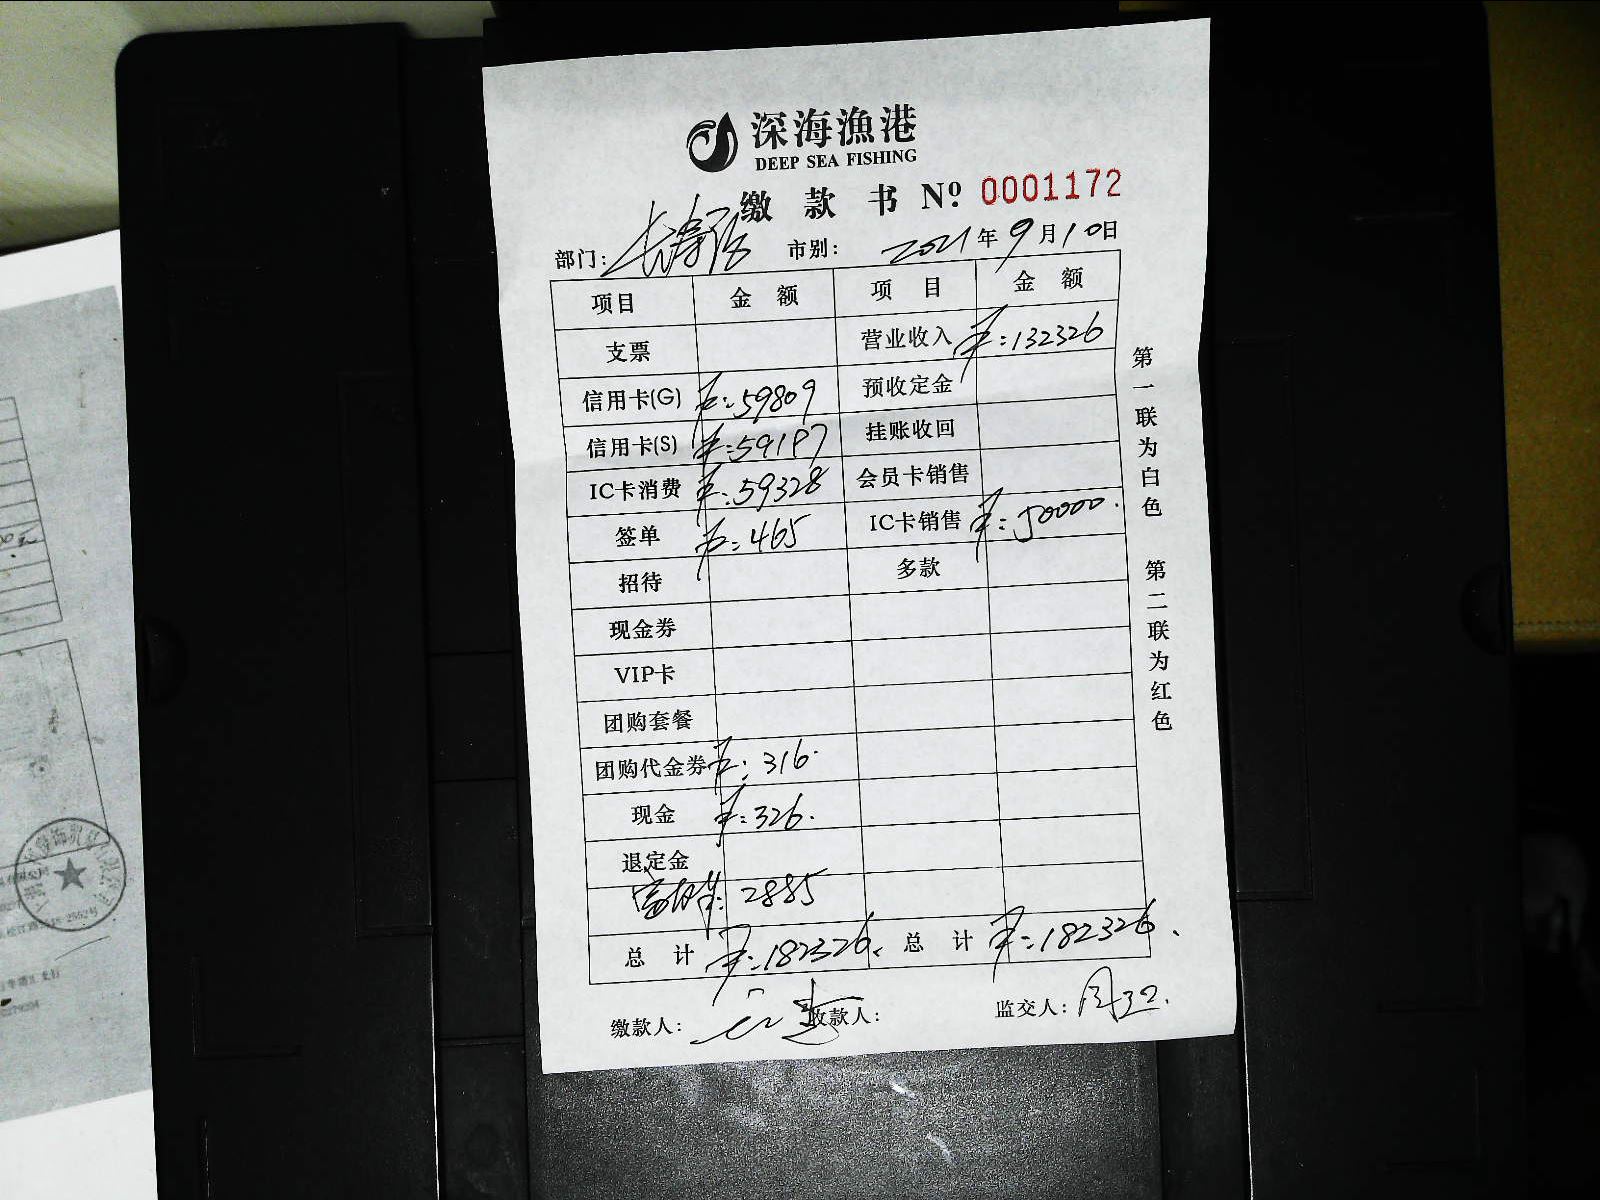 深海漁港
DEEP SEA FISHING
缴款书 Nº 0001172
部门: 长寿路 市别: 2021年9月10日
项目 金额 项目 金额
支票 营业收入 ¥:132326
信用卡(G) ¥:59809 预收定金
信用卡(S) ¥:59197 挂账收回
IC卡消费 ¥:59328 会员卡销售
签单 ¥:465 IC卡销售 ¥:50000.
招待 多款
现金券
VIP卡
团购套餐
团购代金券 ¥:316.
现金 ¥:326.
退定金
2885
总计 ¥:182326. 总计 ¥:182326.
缴款人: 收款人: 监交人:
第一联为白色 第二联为红色